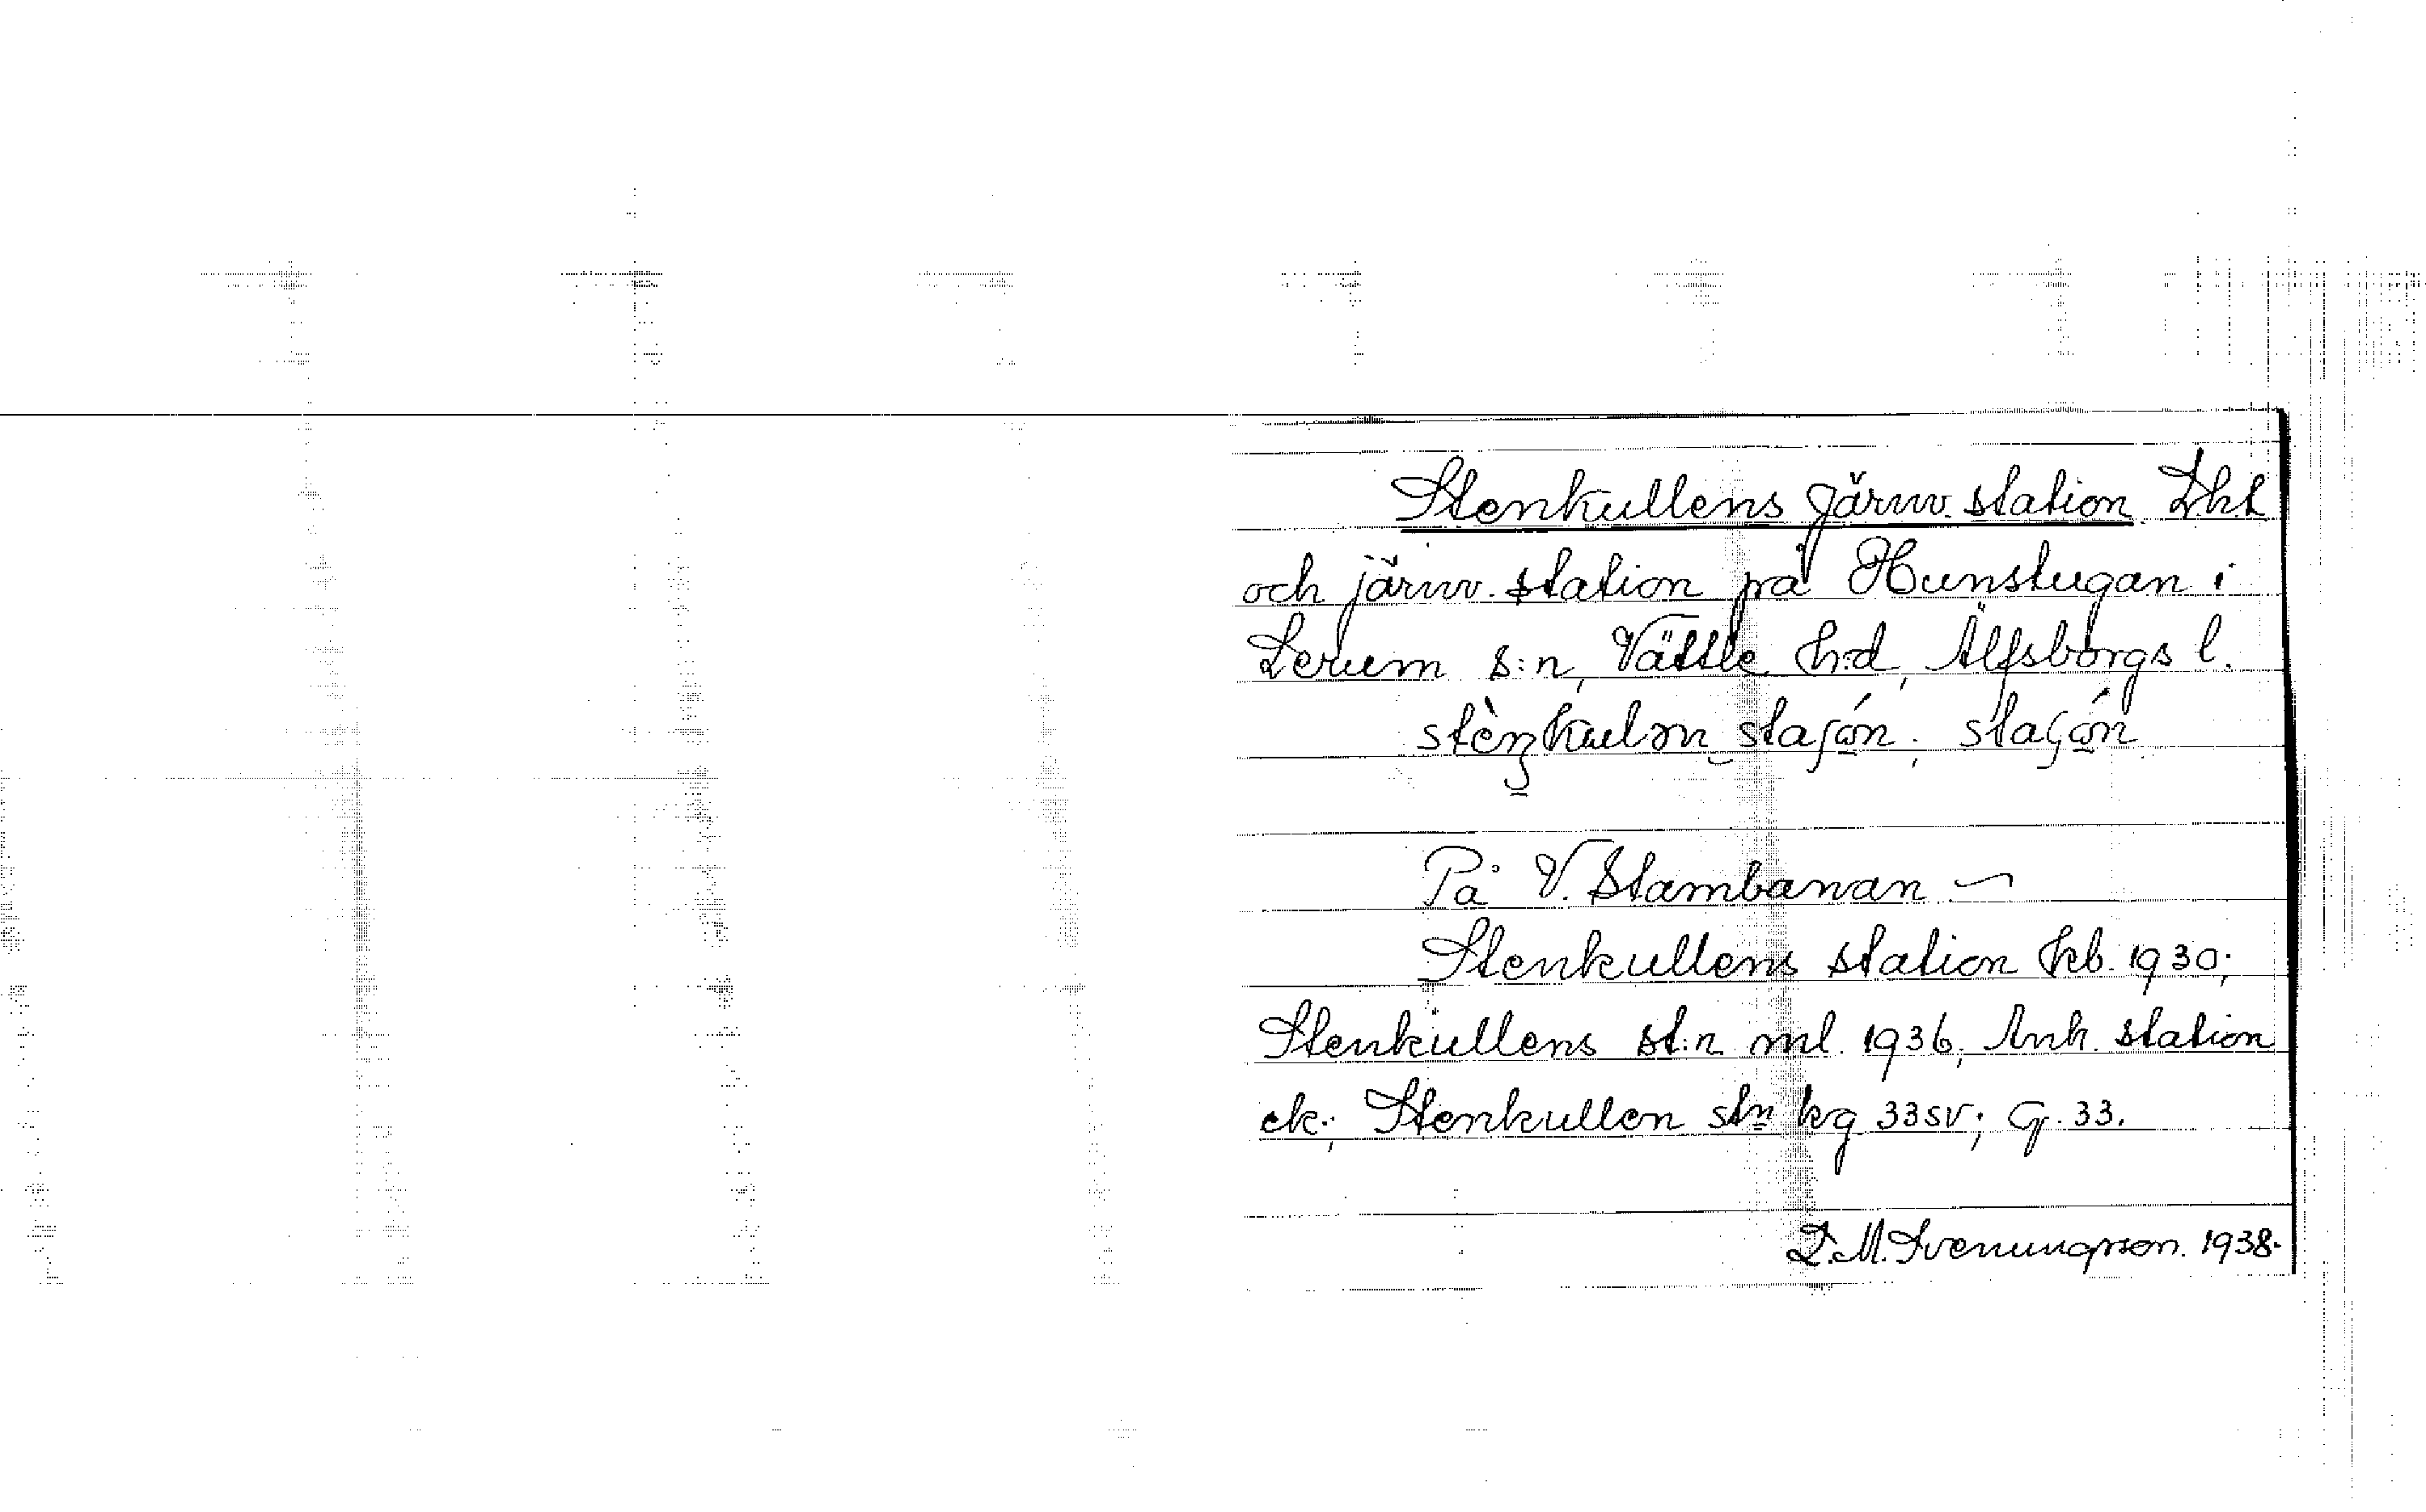 Stenkullens järnv. station. Lht
och järnv. station på Hunstugan i
Lerum s:n, Vättle h:d, Älfsborgs l.
På V. Stambanan
Stenkullens station kb. 1930;
Stenkullens st:n ml. 1936; Anh. station
ek.; Stenkullen stn kg 33sv; G. 33.
D.M. Svenungsson. 1938.